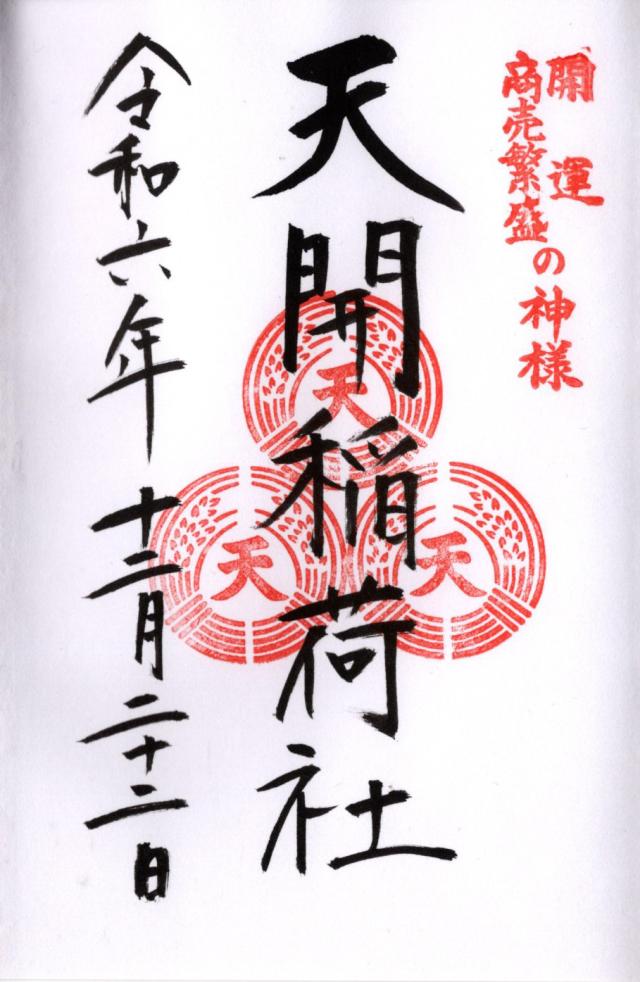 開運
商売繁盛の神様
天開稲荷社
天
天
天
令和六年十二月二十二日